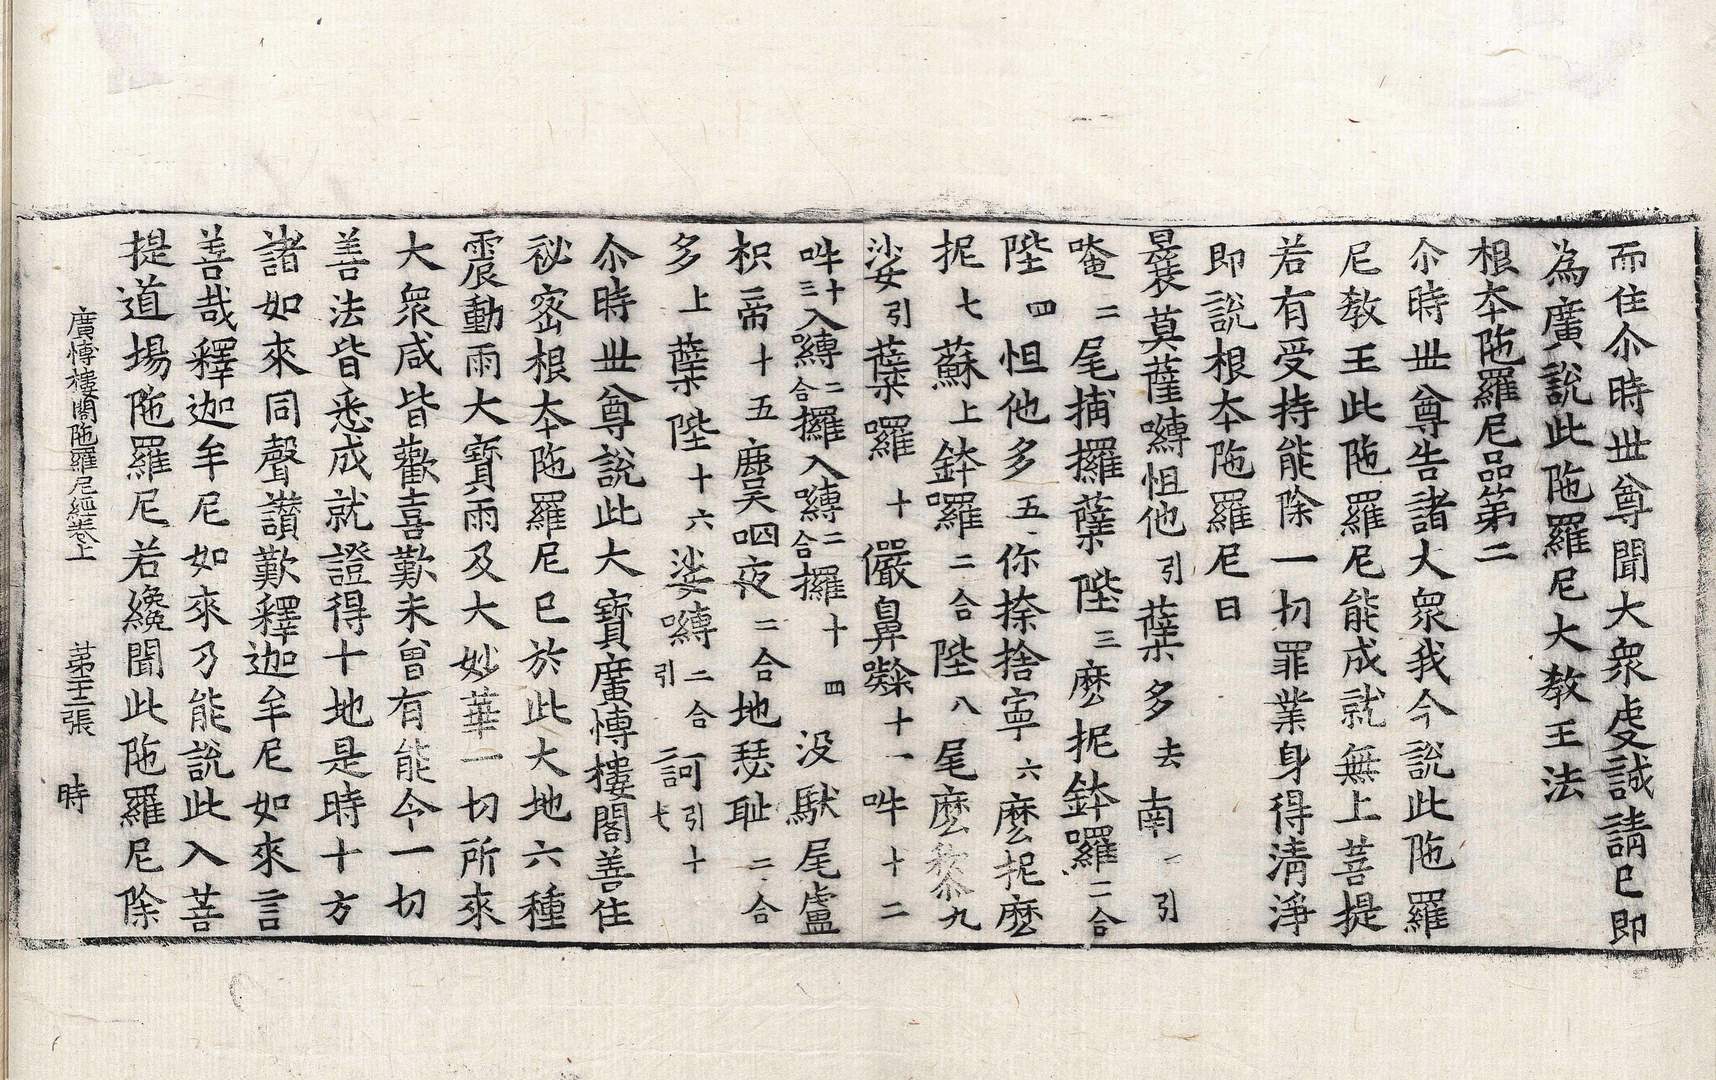 而住尒時世尊聞大衆虔誠請已即
為廣說此陁羅尼大教王法
根夲陁羅尼品第二
尒時世尊告諸大衆我今說此陁羅
尼教王此陁羅尼能成就無上菩提
若有受持能除一切罪業身得清淨
即說根夲陁羅尼曰
曩莫薩嚩怛他引蘖多去南一引
唵二尾捕攞蘖陛三麽抳鉢囉二合
陛四怛他多五你捺捨寧六麽抳麽
抳七蘇上鉢囉二合陛八尾麽黎九
娑引蘖囉十儼鼻㘈十一吽十二
吽十三入嚩二合攞入嚩二合攞十四没馱尾盧
枳帝十五麌呬夜二合地瑟耻二合
多上蘖陛十六娑嚩二合引訶引十七
尒時世尊說此大寶廣慱樓閣善住
祕密根夲陁羅尼已於此大地六種
震動雨大寶雨及大妙華一切所來
大衆咸皆歡喜歎未曾有能令一切
善法皆悉成就證得十地是時十方
諸如來同聲讃歎釋迦牟尼如來言
善哉釋迦牟尼如來乃能說此入菩
提道場陁羅尼若纔聞此陁羅尼除
廣愽樓閣陁羅尼經卷上 苐十三張 時